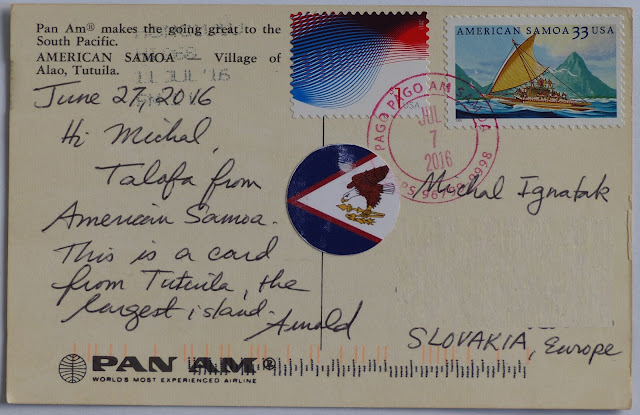 Pan Am® makes the going great to the
South Pacific.
AMERICAN SAMOA Village of
Alao, Tutuila.
11 JUL '16
June 27, 2016
Hi Michal,
Talofa from
American Samoa.
This is a card
from Tutuila, the
largest island.
Arnold
USA
AMERICAN SAMOA 33 USA
PAGO PAGO AM SAMOA
JUL
7
2016
Michal Ignatak
SLOVAKIA, Europe
PAN AM®
WORLD'S MOST EXPERIENCED AIRLINE